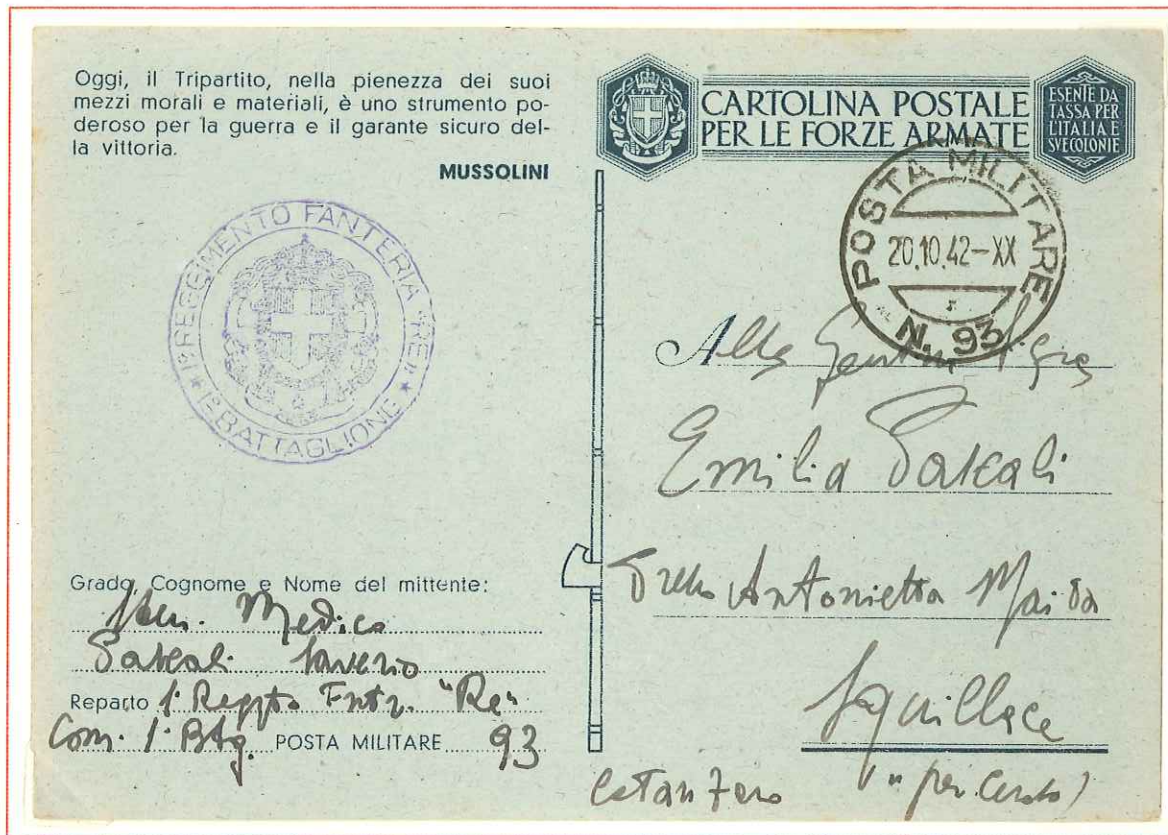 Oggi, il Tripartito, nella pienezza dei suoi
mezzi morali e materiali, è uno strumento po-
deroso per la guerra e il garante sicuro del-
la vittoria.
MUSSOLINI
1° REGGIMENTO FANTERIA "RE"
★ 1° BATTAGLIONE ★
Grado, Cognome e Nome del mittente:
Medico
Pascali Saverio
Reparto 1° Reggto Fntr. "Re"
Com. 1° Btg. POSTA MILITARE 93
CARTOLINA POSTALE
PER LE FORZE ARMATE
ESENTE DA
TASSA PER
L'ITALIA E
SVE COLONIE
POSTA MILITARE
20.10.42-XX
N. 93
Alla
Emilia Pascali
Antonietta Maida
Squillace
Catanzaro